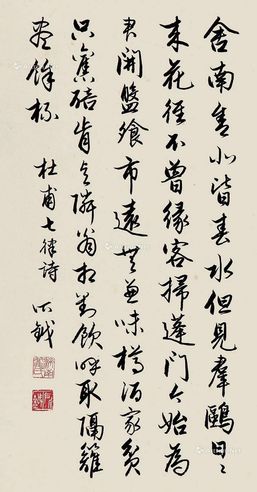 舍南舍北皆春水但見羣鷗日〻
來花徑不曾緣客掃蓬門今始為
君開盤飧市遠無兼味樽酒家貧
只舊醅肯與鄰翁相對飲呼取隔籬
盡餘杯
杜甫七律詩